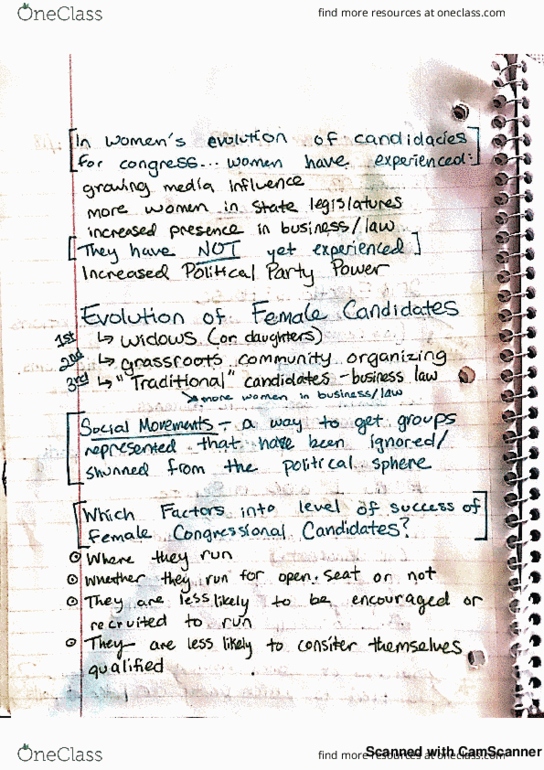 OneClass
find more resources at oneclass.com
[In women's evolution of candidacies
for congress... women have experienced:]
growing media influence
more women in state legislatures
increased presence in business/law
[They have NOT yet experienced]
Increased Political Party Power
Evolution of Female Candidates
1st ↳ widows (or daughters)
2nd ↳ grassroots community organizing
3rd ↳ "Traditional" candidates - business law
↘ more women in business/law
[Social Movements - a way to get groups
represented that have been ignored/
shunned from the political sphere
[Which Factors into level of success of
Female Congressional Candidates?]
⊙ Where they run
⊙ Whether they run for open. seat or not
⊙ They are less likely to be encouraged or
recruited to run
⊙ They are less likely to consiter themselves
qualified
OneClass
find more resources at oneclass.com
Scanned with CamScanner